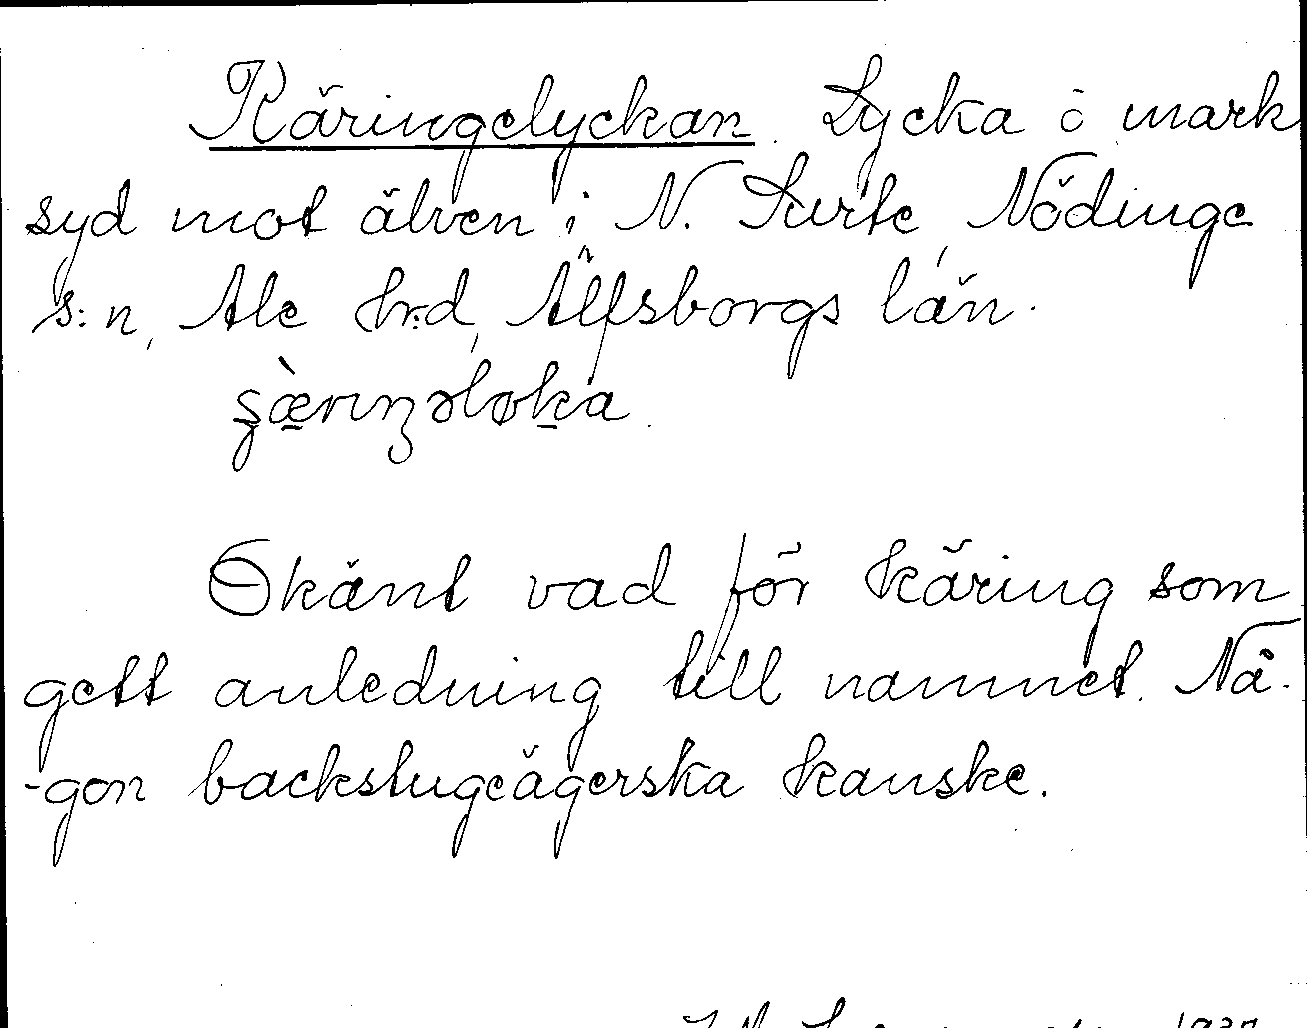 Käringelyckan. Lycka ö mark
syd mot älven i N. Surte, Nödinge
s:n, Ale hr:d, Älfsborgs län.
Okänt vad för käring som
gett anledning till namnet. Nå-
-gon backstugeägerska kanske.